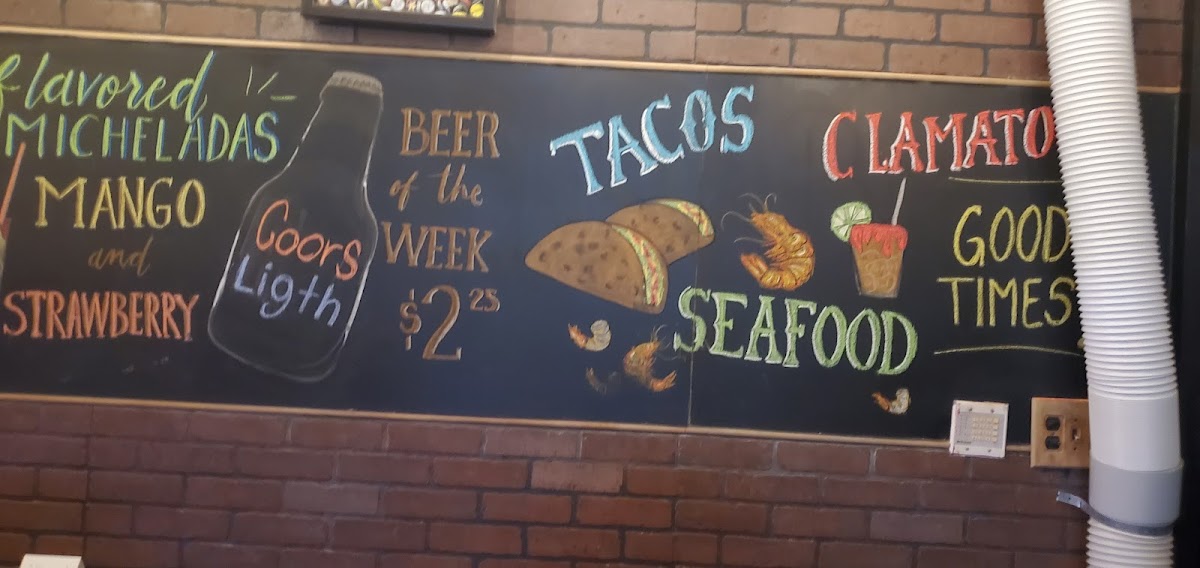 flavored
MICHELADAS
MANGO
and
STRAWBERRY
Coors
Ligth
BEER
of the
WEEK
$2 25
TACOS
SEAFOOD
CLAMATO
GOOD
TIMES